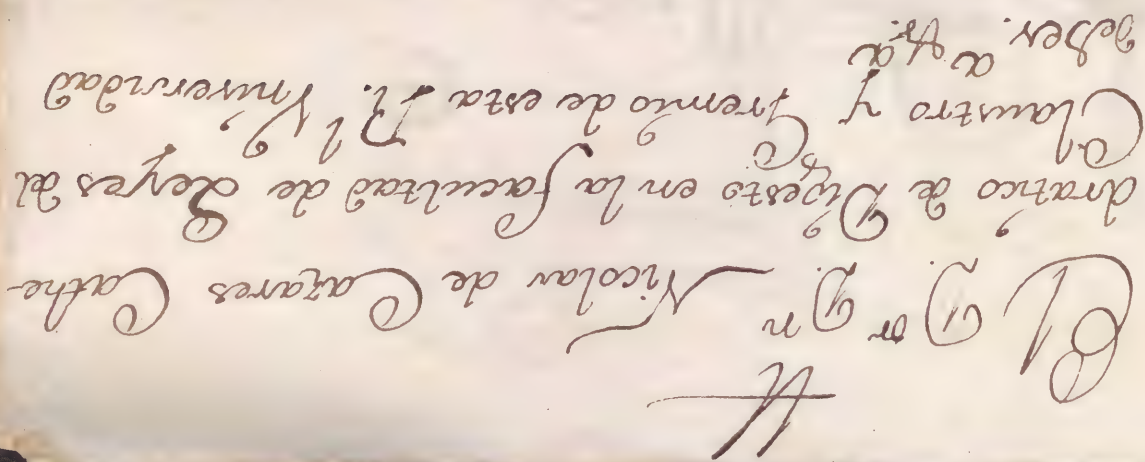 El D.or D.n Nicolas de Cazares Cathe-
dratico de Digesto en la facultad de Leyes del
Claustro y Gremio de esta Rl. Vniversidad